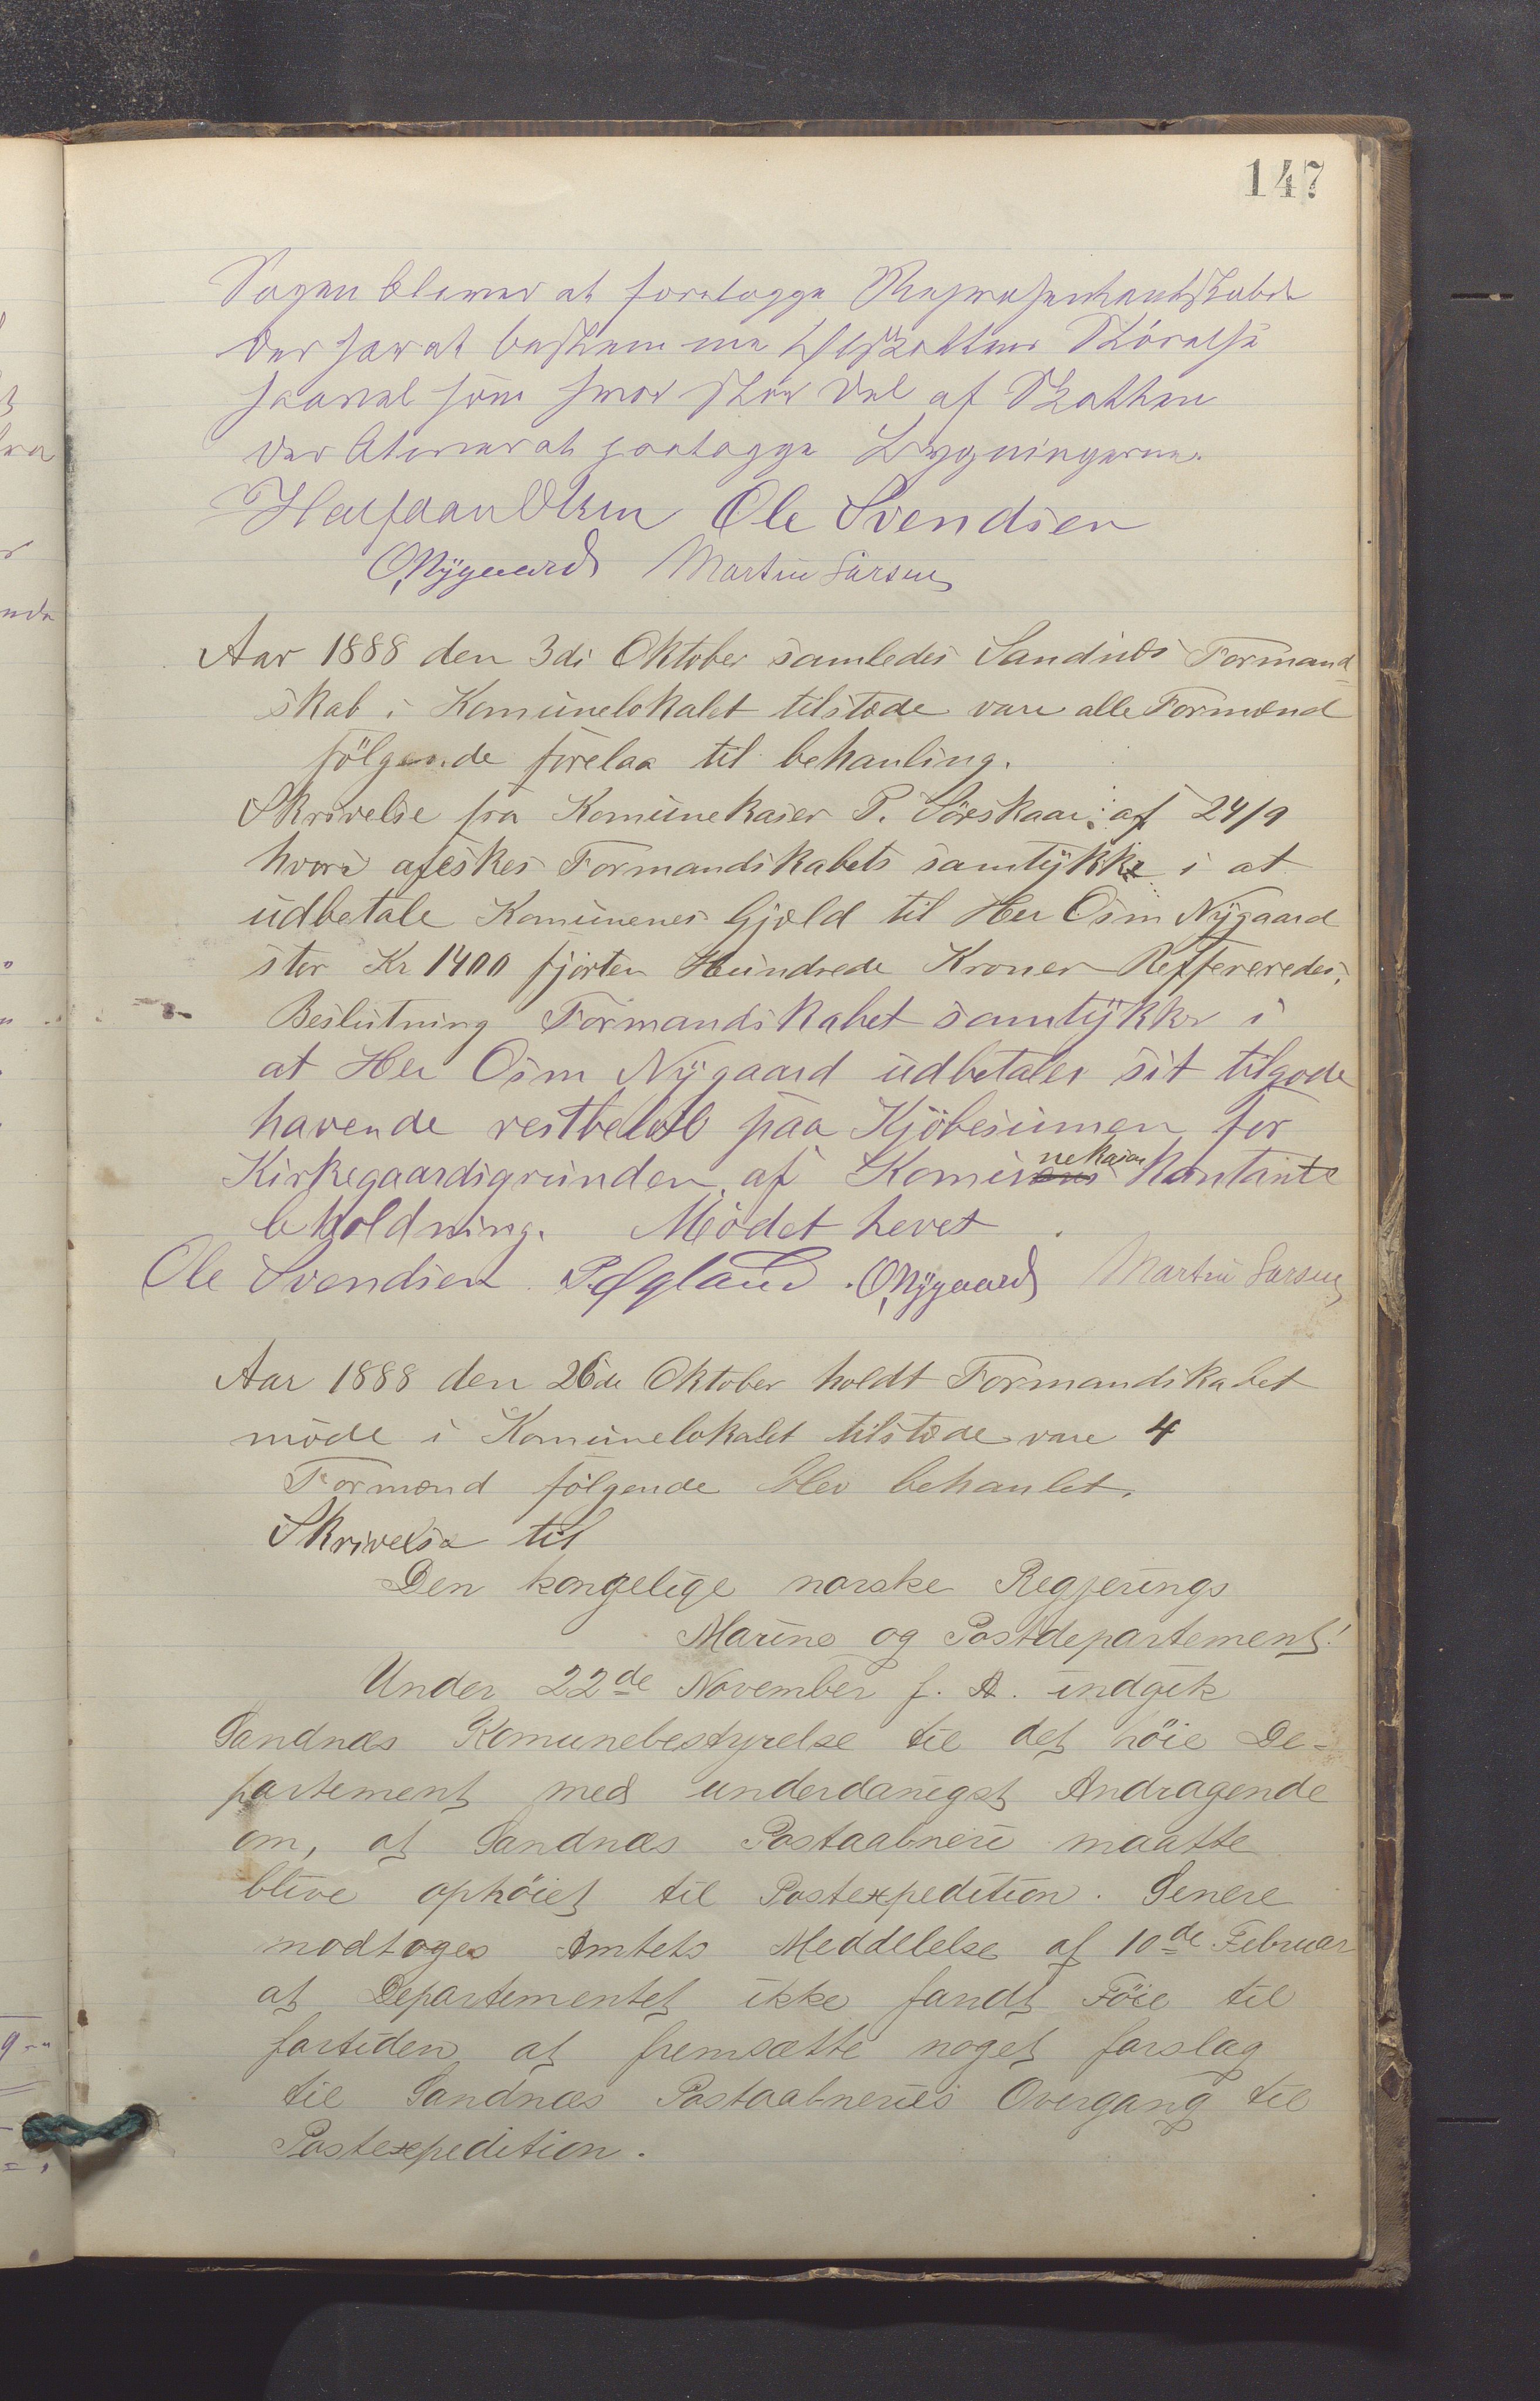 147
Sagen bliver at forelægge Repræsentantskabet
der har at bestemme Ølskattens Størelse
saavel som hvor stor Del af Skatten
der bliver at paalægge Bygningerne.
Halfdan Olsen Ole Svendsen
O Nÿgaard Martin Larsen
Aar 1888 den 3di Oktober samledes Sandnæs Formand
skab i Komunelokalet tilstede vare alle Formænd
fölgende forelaa til behanling.
Skrivelse fra Komunekaser P. Söreskaar af 24/9
hvori afeskes Formandskabets samtÿkke i at
udbetale Komunenes Gjæld til Her Osm Nÿgaard
stor Kr 1400 fjorten Hundrede Kroner Reffereredes.
Beslutning Formandskabet samtÿkker i
at Her Osm Nÿgaard udbetales sit tilgode
havende restbelöb paa Kjöbesumen for
Kirkegaardsgrunden af Komunekasens Kontante
beholdning. Mödet hevet.
Ole Svendsen P. Egeland. O Nÿgaard Martin Larsen
Aar 1888 den 26de Oktober holdt Formandskabet
möde i Komunelokalet tilstede vare 4
Formænd fölgende blev behanlet.
Skrivelse til
Den kongelige norske Regjerings
Marine og Postdepartement!
Under 22de November f. A. indgik
Sandnæs Komunebestyrelse til det höie De-
partement med underdanigst Andragende
om, at Sandnæs Postaabneri maatte
blive ophöiet til Postexpedition. Senere
modtoges Amtets Meddelelse af 10de Februar
at Departementet ikke fandt Föie til
fortiden at fremsætte noget forslag
til Sandnæs Postaabneries Overgang til
Postexpedition.